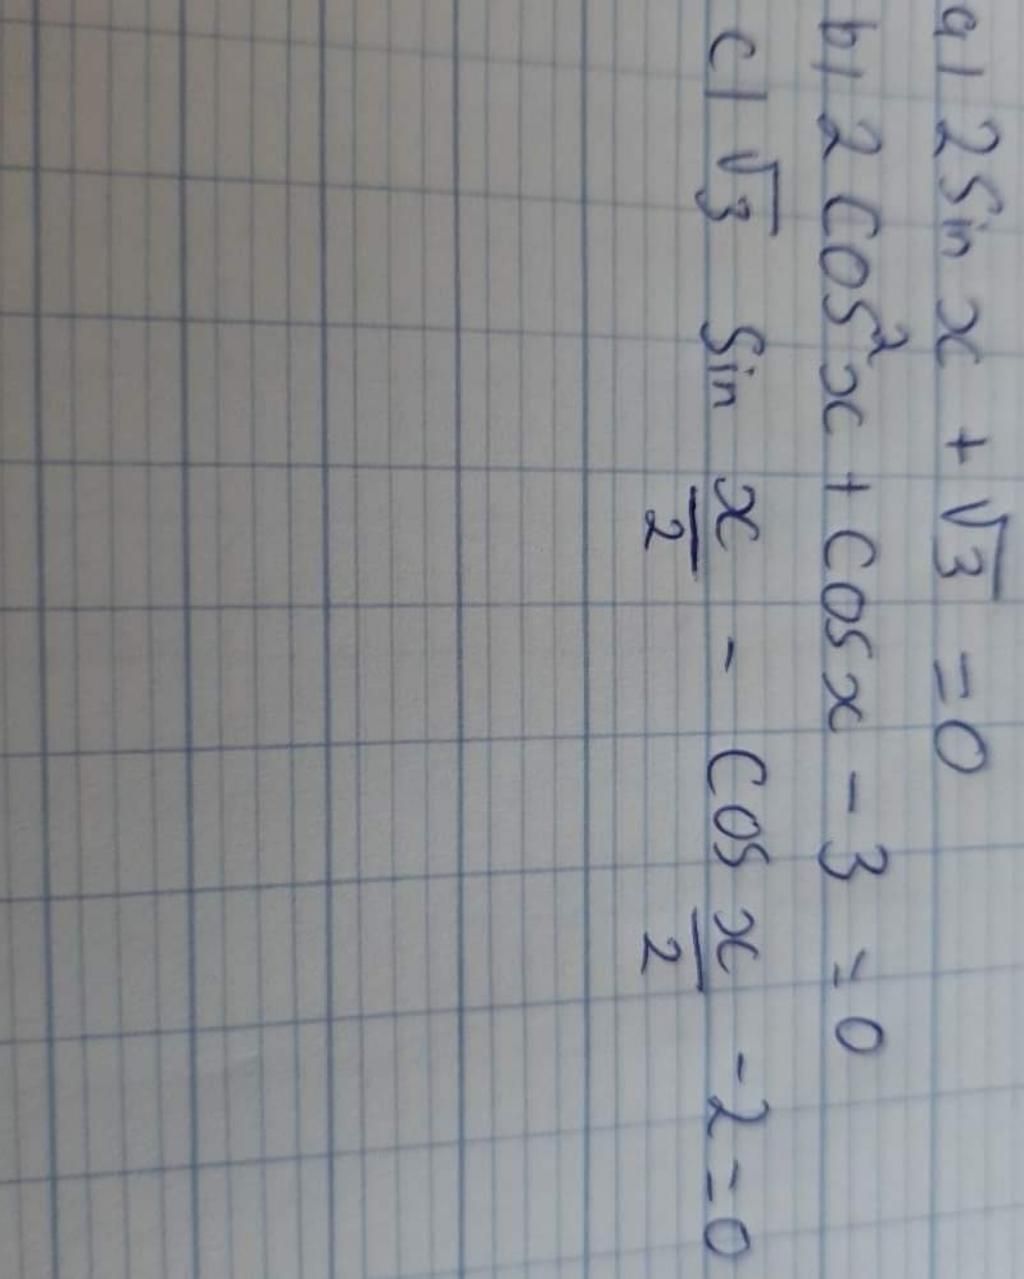 a) 2 Sin x + √3 = 0
b) 2 Cos²x + Cos x - 3 = 0
c) √3 Sin x/2 - Cos x/2 - 2 = 0